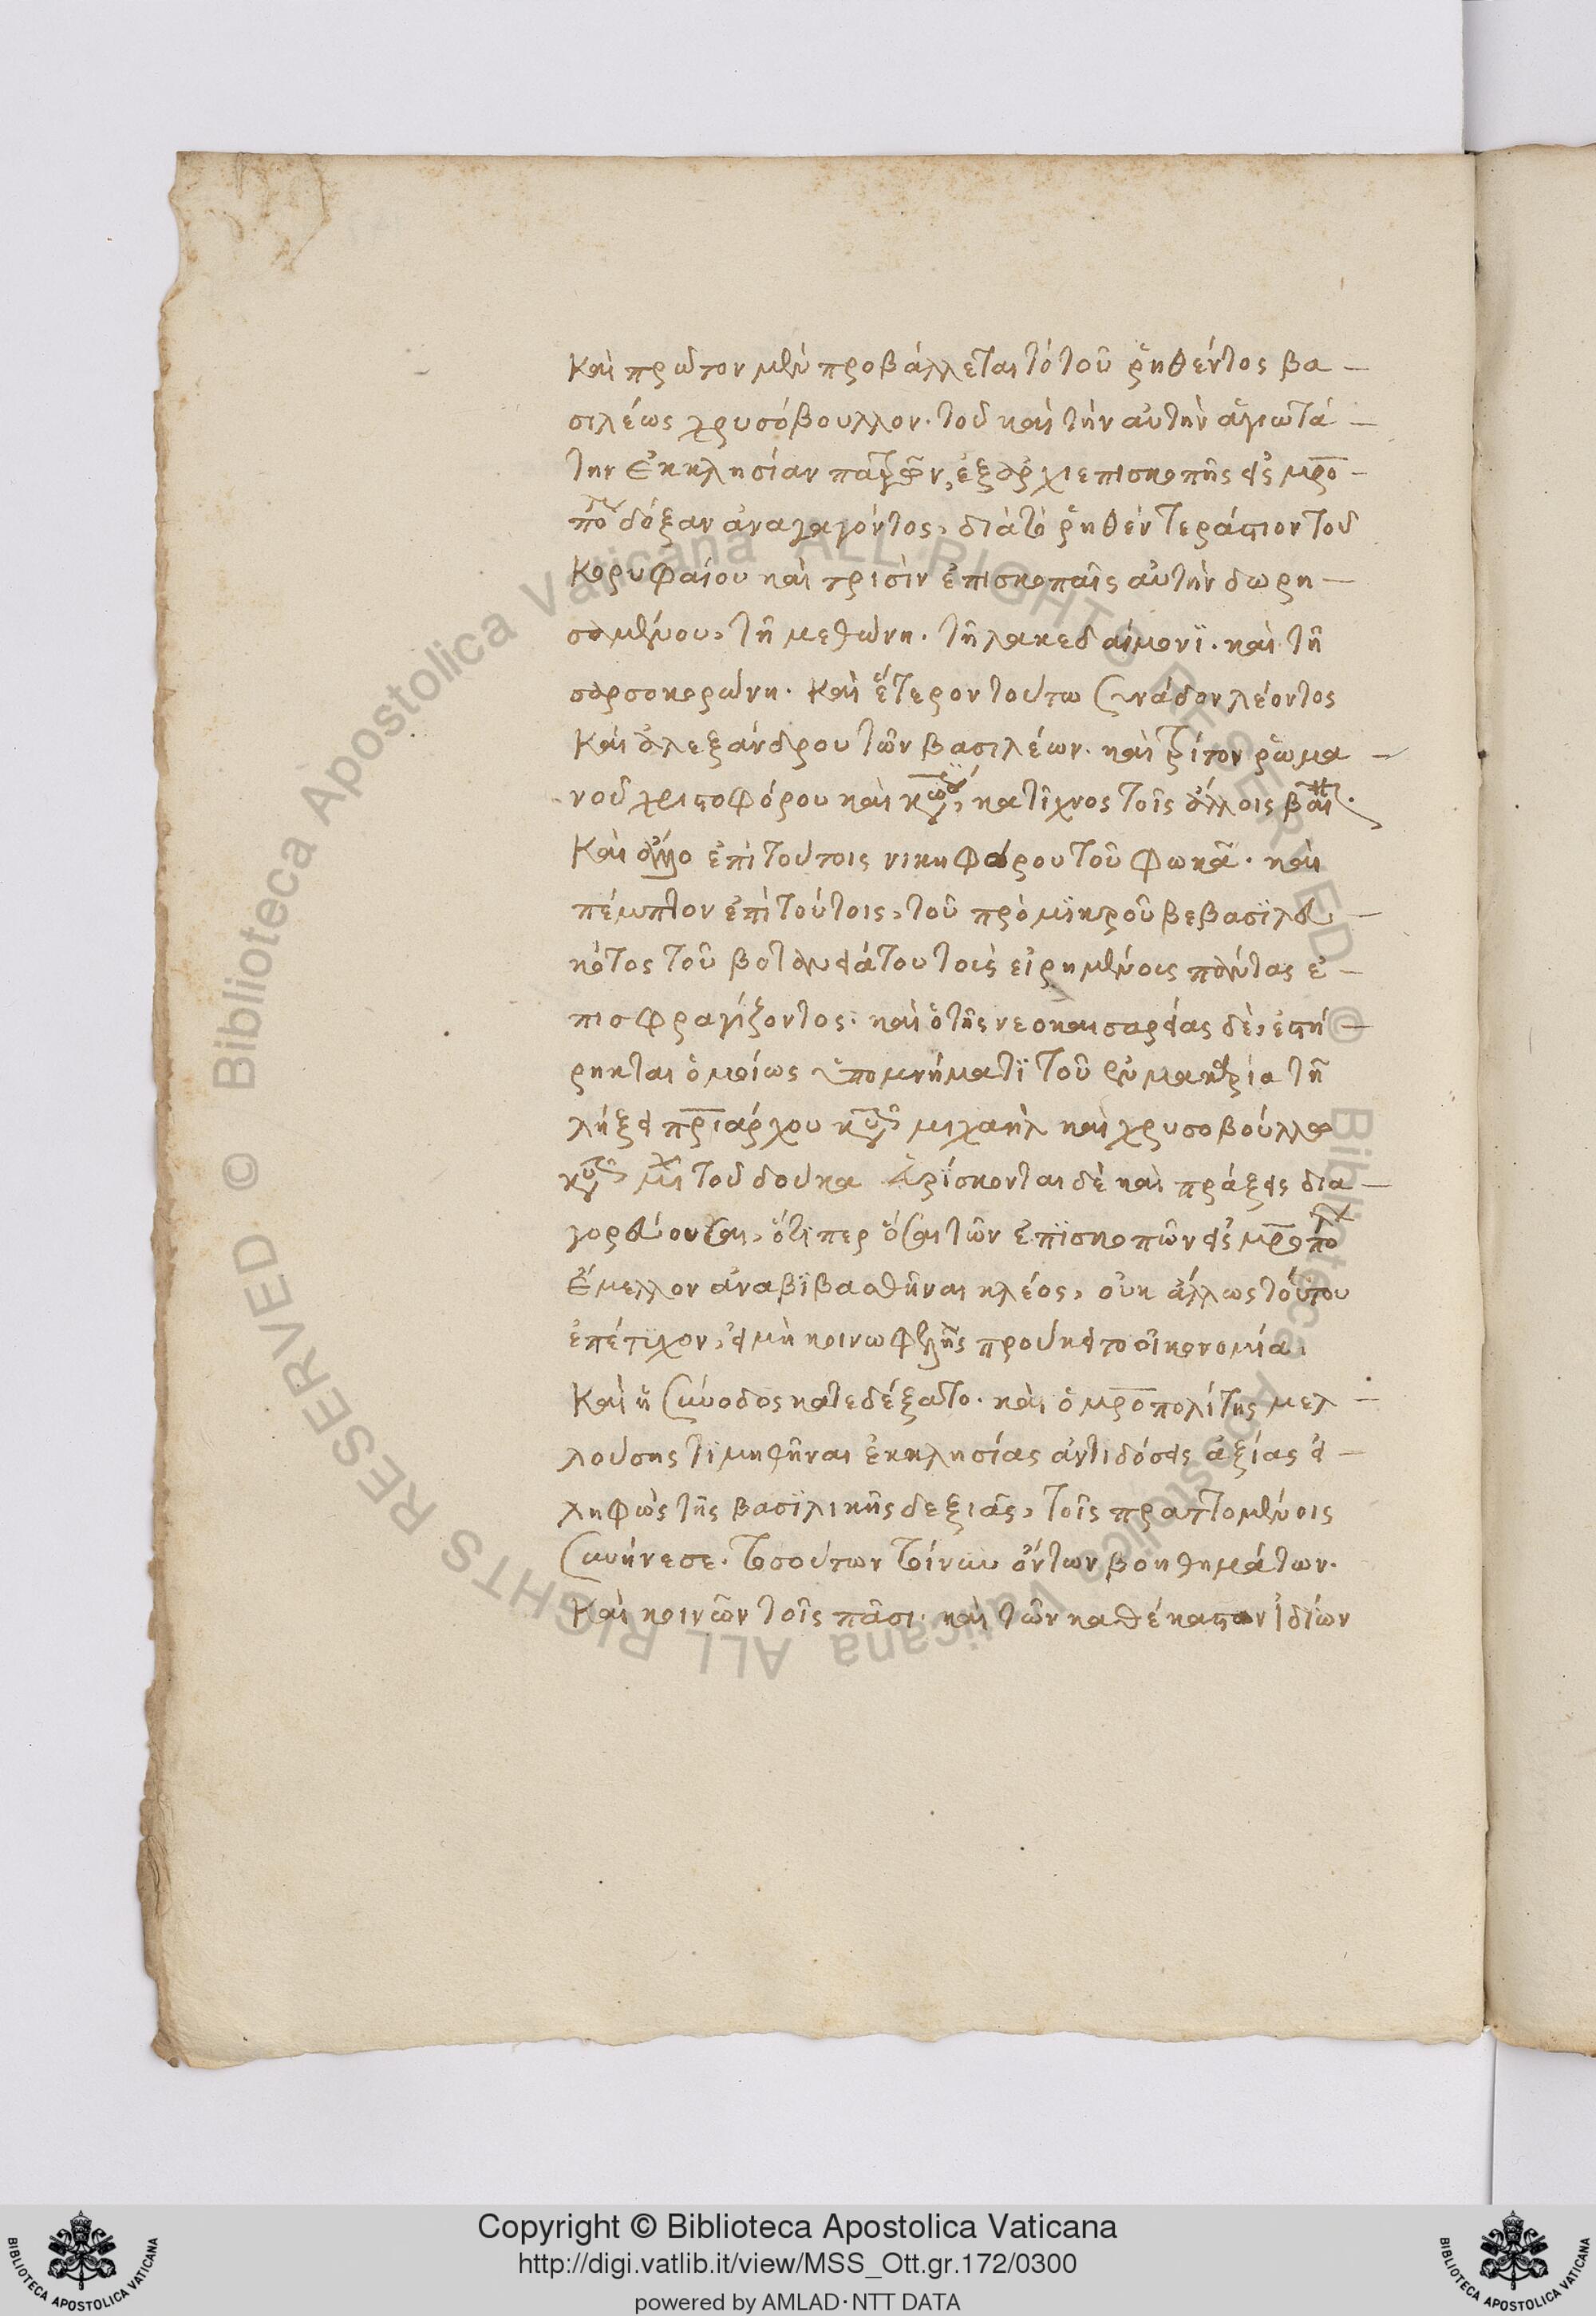 καὶ πρῶτον μὲν προβάλλεται τὸ τοῦ ῥηθέντος βα –
σιλέως χρυσόβουλλον. τοῦ καὶ τὴν αὐτὴν ἁγιωτά –
την ἐκκλησίαν πατρῶν, ἐξ ἀρχιεπισκοπῆς εἰς μρο –
πο δόξαν ἀναγαγόντος, διὰ τὸ ῥηθὲν τεράστιον τοῦ
κορυφαίου καὶ τρισὶν ἐπισκοπαῖς αὐτὴν δωρη –
σαμένου, τῆ μεθώνη. τῆ λακεδαίμονϊ. καὶ τῆ
σαρσοκορώνη. καὶ ἕτερον τούτω συνάδον λέοντος
καὶ ἀλεξάνδρου τῶν βασιλέων. καὶ τρίτον ῥωμα –
νοῦ χριστοφόρου καὶ κων, κατίχνος τοῖς ἄλλοις
καὶ ἐπὶ τούτοις νικηφόρου τοῦ φωκᾶ. καὶ
πέμπτον ἐπὶ τούτοις, τοῦ πρὸ μϊκροῦ βεβασϊλευ –
κότος τοῦ βοτανειάτου τοῖς εἰρημένοις πάντας ἐ –
πισφραγίζοντος. καὶ ὁ τῆς νεοκαισαρείας δὲ, ἐστή –
ρηκται ὁμοίως ὑπομνήματϊ τοῦ ἐν μακαρία τῆ
λήξει πριάρχου κυροῦ μιχαὴλ καὶ χρυσοβούλλω
κυροῦ μι τοῦ δούκα εὑρίσκονται δὲ καὶ πράξεις δια –
γορεύουσαι, ὅτι περ ὅσαι τῶν ἐπϊσκοπῶν εἰς μροπο
ἔμελλον ἀναβϊβασθῆναι κλέος, οὐκ ἄλλως τούτου
ἐπέτυχον, εἰ μὴ κοινωφελὴς προύκειτο οἰκονομία.
καὶ ἡ σύνοδος κατεδέξατο. καὶ ὁ μροπολίτης μελ –
λούσης τϊμηθῆναι ἐκκλησίας ἀντιδόσεις ἀξίας εἰ –
ληφὼς τῆς βασϊλικῆς δεξιᾶς, τοῖς πραττομένοις
συνήνεσε. τοσούτων τοίνυν ὄντων βοηθημάτων.
καὶ κοινῶν τοῖς πᾶσι. καὶ τῶν καθέκαστον ἰδίων
Copyright © Biblioteca Apostolica Vaticana
http://digi.vatlib.it/view/MSS_Ott.gr.172/0300
powered by AMLAD·NTT DATA
BIBLIOTECA APOSTOLICA VATICANA
BIBLIOTECA APOSTOLICA VATICANA
© Biblioteca Apostolica Vaticana ALL RIGHTS RESERVED
© Biblioteca Apostolica Vaticana ALL RIGHTS RESERVED